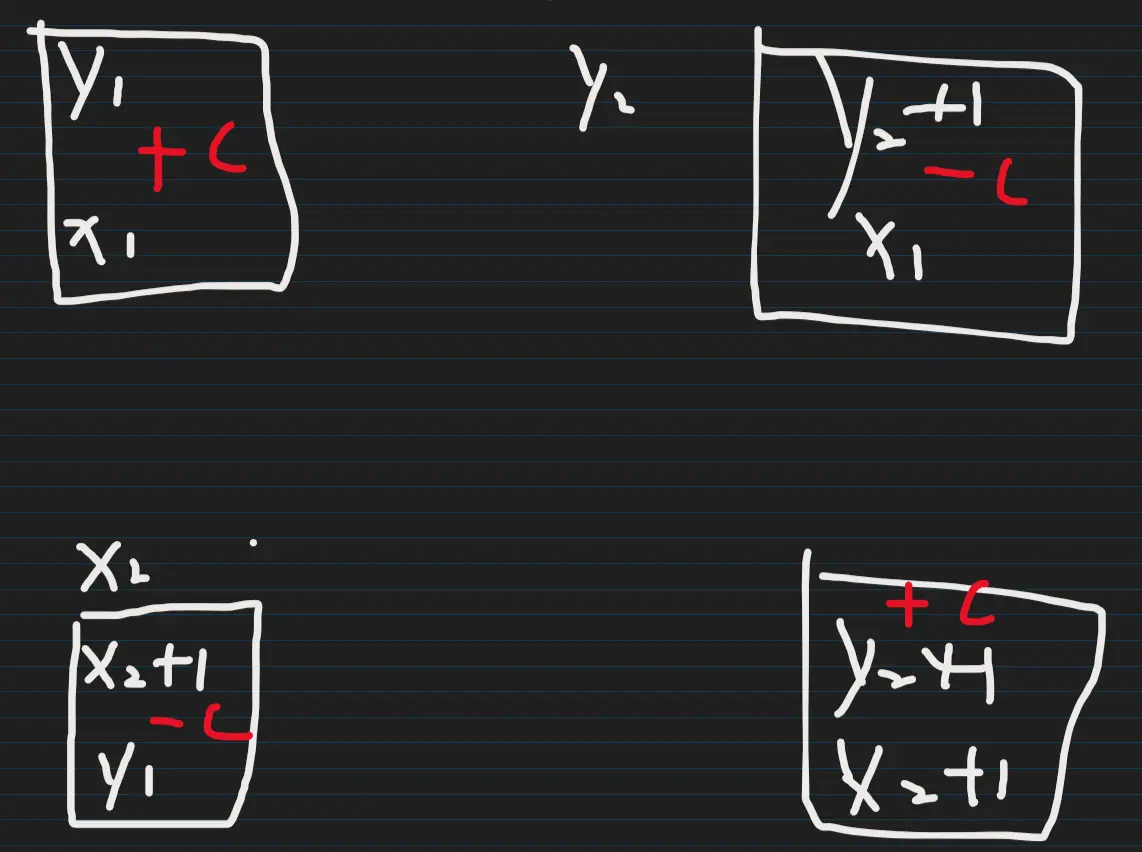 y1
+ c
x1
y2
y2+1
- c
x1
x2
x2+1
- c
y1
+ c
y2+1
x2+1